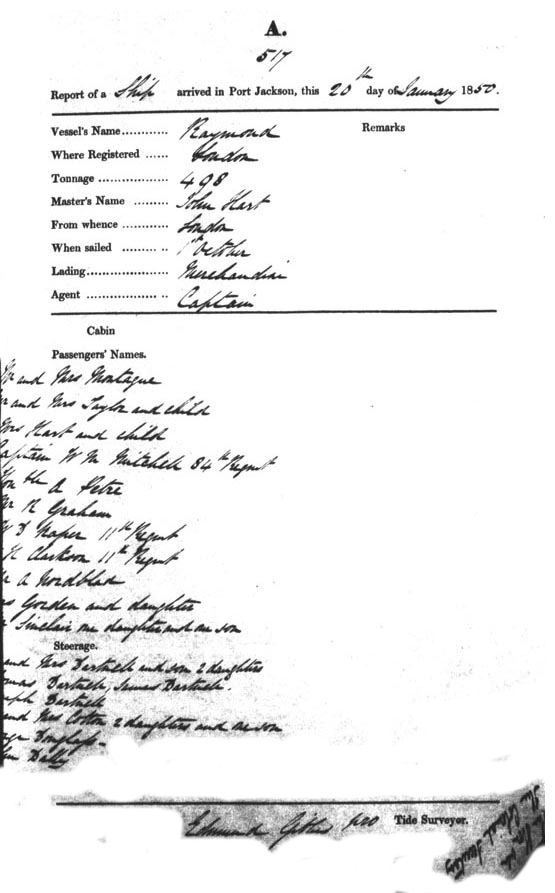 A.
517
Report of a Ship arrived in Port Jackson, this 20th day of January 1850.
Vessel's Name............ Raymond
Remarks
Where Registered ...... London
Tonnage .................. 498
Master's Name ......... John Hart
From whence ............ London
When sailed ........ .. 1st October
Lading..................... Merchandise
Agent ................. .. Captain
Cabin
Passengers' Names.
and Mrs Montague
and Mrs Taylor and child
Mrs Hart and child
Captain W M Mitchell 84th Regmt
Honble A Petre
Mr R Graham
W D Naper 11th Regmt
R Clarkson 11th Regmt
A Nordblad
Gorden and daughter
Sinclair one daughter and one son
Steerage.
and Mrs Dartnell and son 2 daughters
Dartnell, James Dartnell.
Dartnell
and Mrs Cotton 2 daughters and one son
Douglass
Dally
Edmund pro Tide Surveyor.